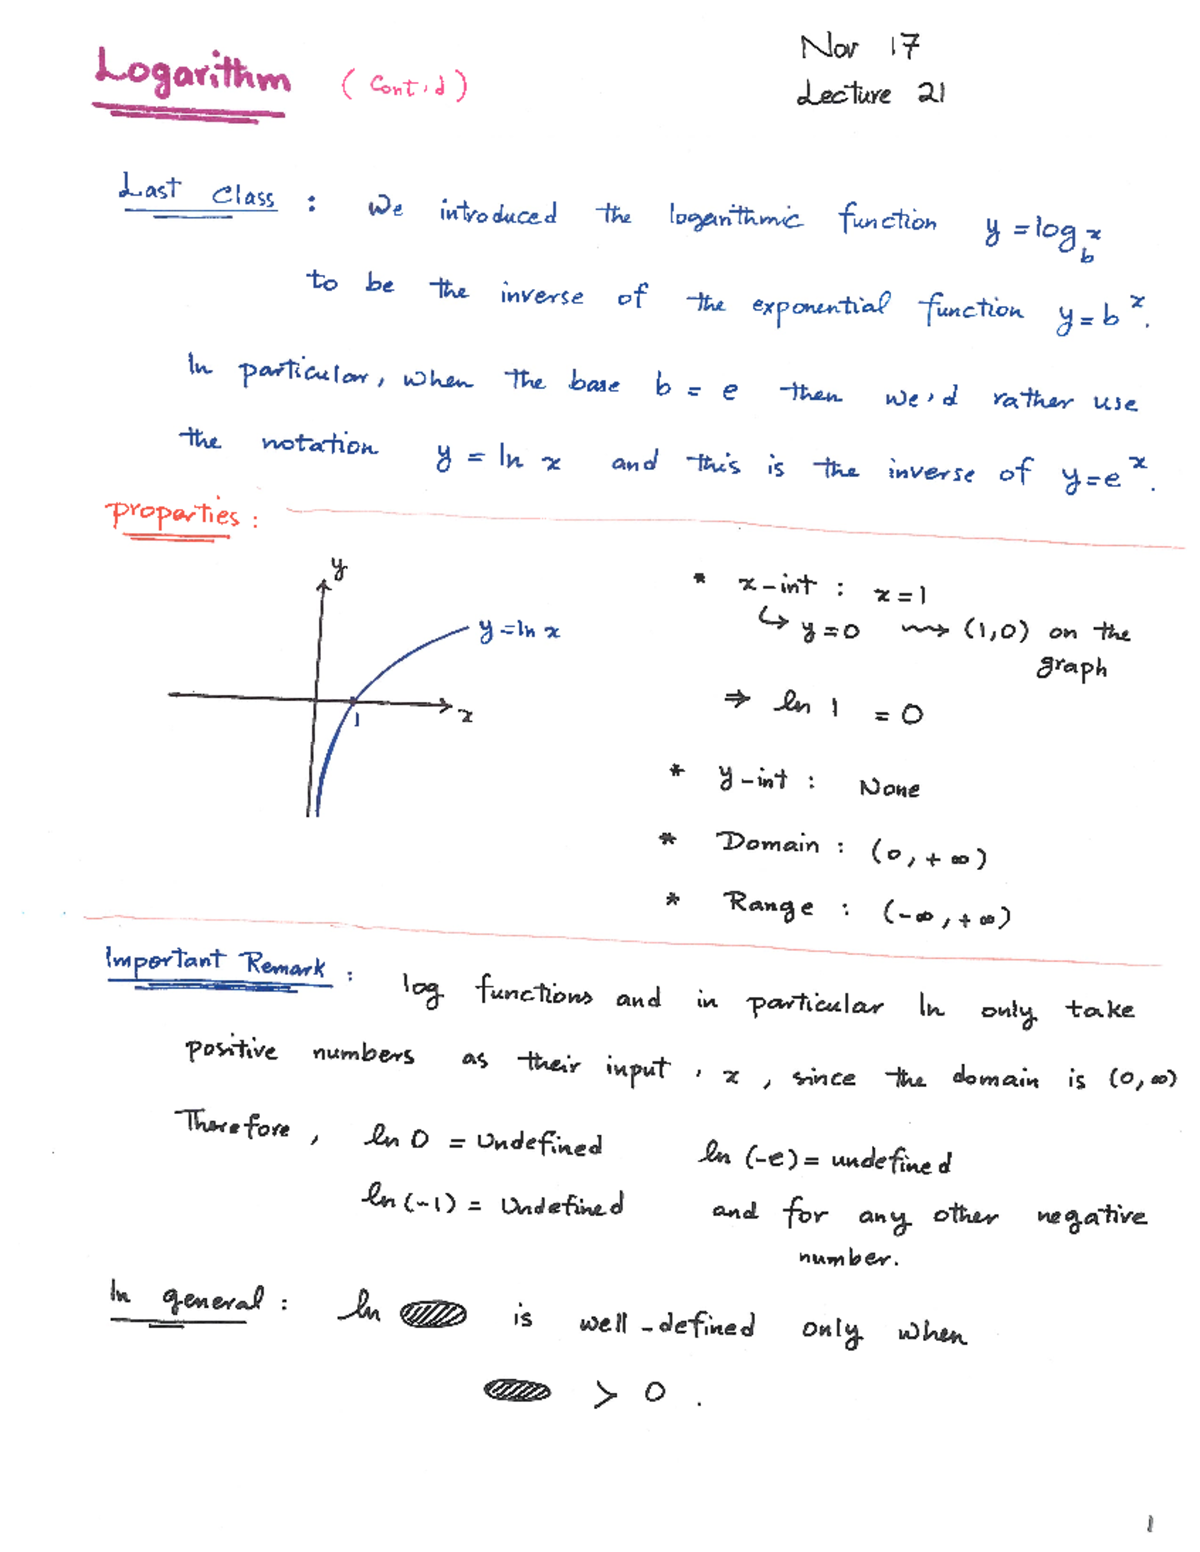 Logarithm (Cont'd)
Nov 17
Lecture 21
Last Class : We introduced the logarithmic function y = log_b x
to be the inverse of the exponential function y = b^x.
In particular, when the base b = e then we'd rather use
the notation y = ln x and this is the inverse of y = e^x.
properties :
y
y = ln x
x
1
* x-int : x = 1
↳ y = 0 ⇝ (1,0) on the
graph
⇒ ln 1 = 0
* y-int : None
* Domain : (0, +∞)
* Range : (-∞, +∞)
Important Remark : log functions and in particular ln only take
positive numbers as their input, x, since the domain is (0, ∞)
Therefore, ln 0 = Undefined ln (-e) = undefined
ln (-1) = Undefined and for any other negative
number.
In general : ln is well-defined only when
> 0 .
1